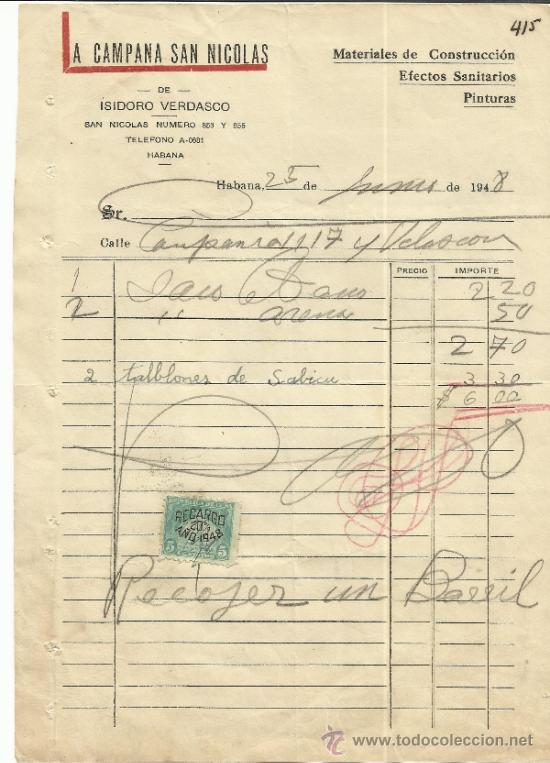 415
LA CAMPANA SAN NICOLAS
— DE —
ISIDORO VERDASCO
SAN NICOLAS NUMERO 853 Y 855
TELEFONO A-0681
HABANA
Materiales de Construcción
Efectos Sanitarios
Pinturas
Habana, 25 de Junio de 1948
Sr.
Calle Campanario 1117 y Velascon
PRECIO IMPORTE
1 Saco 2 20
2 " arena 50
2 70
2 tablblones de Sabicu 3 30
$ 6 00
RECARGO
20%
AÑO-1948
5 5
Recojer un Barril
todocoleccion
www.todocoleccion.net